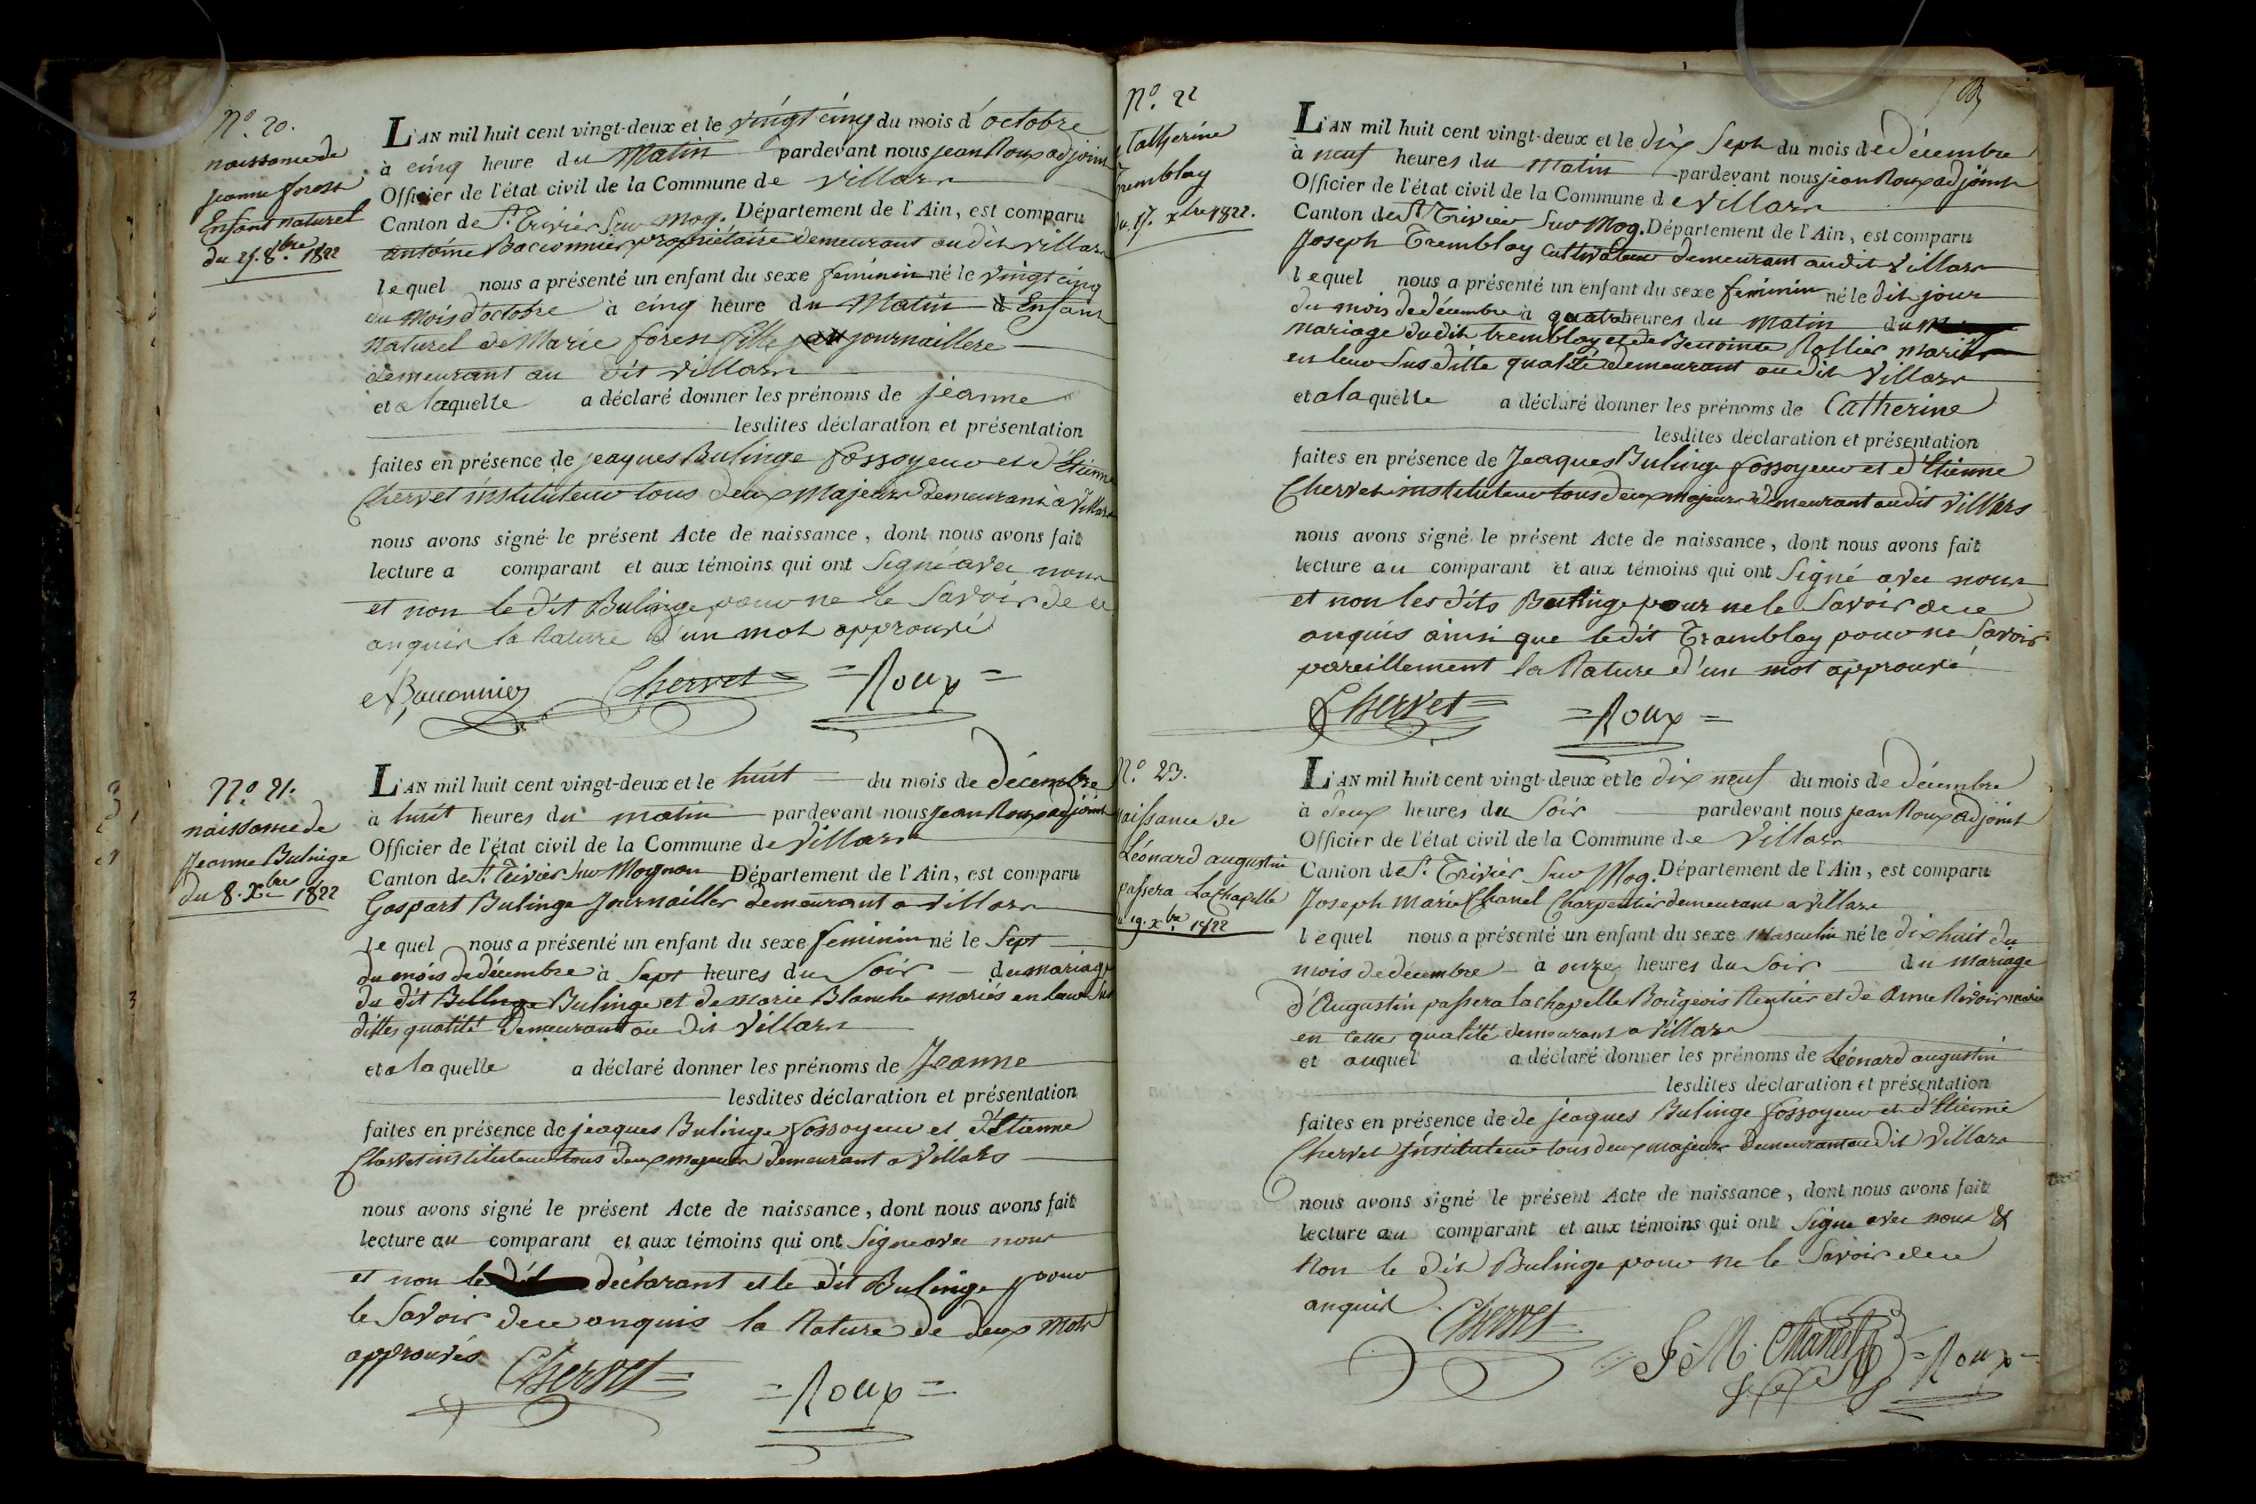 N.o 20.
naissance de
jeanne forest
Enfant naturel
du 25. 8.bre 1822
L'AN mil huit cent vingt-deux et le vingt cinq du mois d'octobre
à cinq heure du Matin pardevant nous jean Roux adjoint
Officier de l'état civil de la Commune de Villars
Canton de St. Trivier Sur Mog. Département de l'Ain, est comparu
antoine Baconnier propriétaire demeurant au dit villars
lequel nous a présenté un enfant du sexe feminin né le vingt cinq
du Mois d'octobre à cinq heure du Matin Enfant
Naturel de Marie forest fille journaillere
demeurant au dit villars
et a laquelle a déclaré donner les prénoms de jeanne
lesdites déclaration et présentation
faites en présence de jeaques Bulinge fossoyeur et d'Etienne
Chervet instituteur tous deux Majeurs demeurant à Villars
nous avons signé le présent Acte de naissance, dont nous avons fait
lecture a comparant et aux témoins qui ont Signé avec nous
et non le dit Bulinge pour ne le Savoir de ce
anquis la Rature d'un mot approuvé
Baconnier Chervet = = Roux =
N.o 21.
naissance de
Jeanne Bulinge
du 8. X.bre 1822
L'AN mil huit cent vingt-deux et le huit du mois de décembre
à huit heures du matin pardevant nous jean Roux adjoint
Officier de l'état civil de la Commune de Villars
Canton de St. Trivier Sur Mognon Département de l'Ain, est comparu
Gaspart Bulinge Journaillier demeurant a villars
le quel nous a présenté un enfant du sexe feminin né le Sept
du mois de décembre à Sept heures du Soir du mariage
du dit Bulinge et de Marie Blanche mariés en leur Sus
dittes qualité demeurant au dit Villars
et a laquelle a déclaré donner les prénoms de Jeanne
lesdites déclaration et présentation
faites en présence de jeaques Bulinge fossoyeur et d'Etienne
Chervet instituteur tous deux majeurs demeurant a Villars
nous avons signé le présent Acte de naissance, dont nous avons fait
lecture au comparant et aux témoins qui ont Signé avec nous
et non le déclarant et le dit Bulinge pour
le Savoir de ce anquis la Rature de deux Mots
approuvés Chervet = = Roux =
N.o 22
Catherine
Tremblay
du 17. xbre 1822.
L'AN mil huit cent vingt-deux et le dix Sept du mois de décembre
à neuf heures du Matin pardevant nous jean Roux adjoint
Officier de l'état civil de la Commune de Villars
Canton de St. Trivier Sur Mog. Département de l'Ain, est comparu
Joseph Tremblay Cultivateur demeurant audit Villars
lequel nous a présenté un enfant du sexe feminin né le dit jour
du mois de décembre à quatre heures du Matin du
mariage dudit tremblay et de Benointe Rollier mariés
en leur Sus ditte qualité demeurant au dit Villars
et a laquelle a déclaré donner les prénoms de Catherine
lesdites déclaration et présentation
faites en présence de Jeaques Bulinge fossoyeur et d'Etienne
Chervet instituteur tous deux majeurs demeurant audit Villars
nous avons signé le présent Acte de naissance, dont nous avons fait
lecture au comparant et aux témoins qui ont Signé avec nous
et non les dits Bulinge pour ne le Savoir de ce
anquis ainsi que le dit Tramblay pour ne Savoir
pareillement la Rature d'un mot approuvé
Chervet = = Roux =
N.o 23.
naissance de
Léonard augustin
passera Lachapelle
19. x.bre 1822
L'AN mil huit cent vingt-deux et le dix neuf du mois de décembre
à deux heures du Soir pardevant nous jean Roux adjoint
Officier de l'état civil de la Commune de Villars
Canton de St. Trivier Sur Mog. Département de l'Ain, est comparu
Joseph Marie Chanel Charpentier demeurant a villars
lequel nous a présenté un enfant du sexe Masculin né le dix huit du
mois de décembre à onze heures du Soir du Mariage
d'Augustin passera lachapelle Bourgeois Rentier et de Anne Rivoir mariés
en cette qualité demeurant a Villars
et auquel a déclaré donner les prénoms de Léonard augustin
lesdites déclaration et présentation
faites en présence de de jeaques Bulinge fossoyeur et d'Etienne
Chervet Instituteur tous deux majeurs demeurant au dit Villars
nous avons signé le présent Acte de naissance, dont nous avons fait
lecture au comparant et aux témoins qui ont Signé avec nous &
Non le dit Bulinge pour ne le Savoir de ce
anquis. Chervet
J. M. Chanel = Roux =